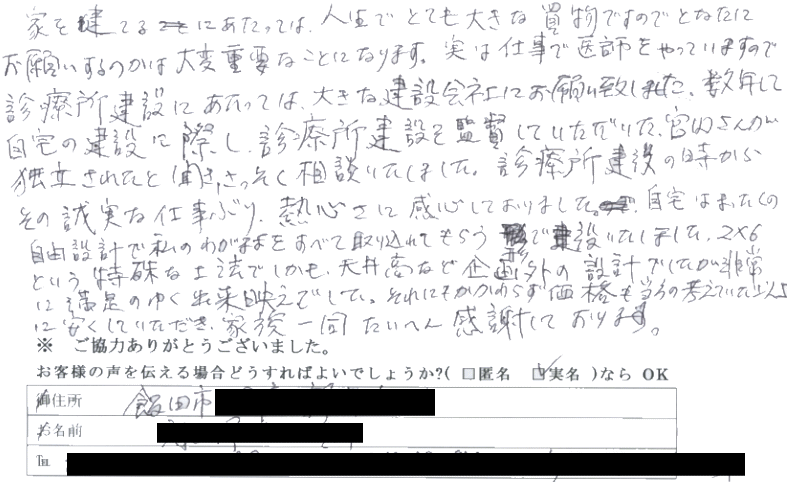 家を建てるにあたっては、人生でとても大きな買物ですのでどなたに
お願いするのかは大変重要なことになります。実は仕事で医師をやっていますので
診療所建設にあたっては、大きな建設会社にお願い致しました。数年して
自宅の建設に際し、診療所建設を監督していただいた、宮内さんが
独立されたと聞き、さっそく相談いたしました。診療所建設の時から
その誠実な仕事ぶり、熱心さに感心しておりました。自宅はまったくの
自由設計で私のわがままをすべて取り込れてもらう形で建設いたしました。2×6
という特殊な工法でしかも、天井高など企画外の設計でしたが非常
に満足のゆく出来映えでした。それにもかかわらず価格も当方の考えていた以上
に安くしていただき、家族一同たいへん感謝しております。
※ ご協力ありがとうございました。
お客様の声を伝える場合どうすればよいでしょうか?( □匿名 ☑実名 )なら OK
御住所 飯田市
お名前
℡